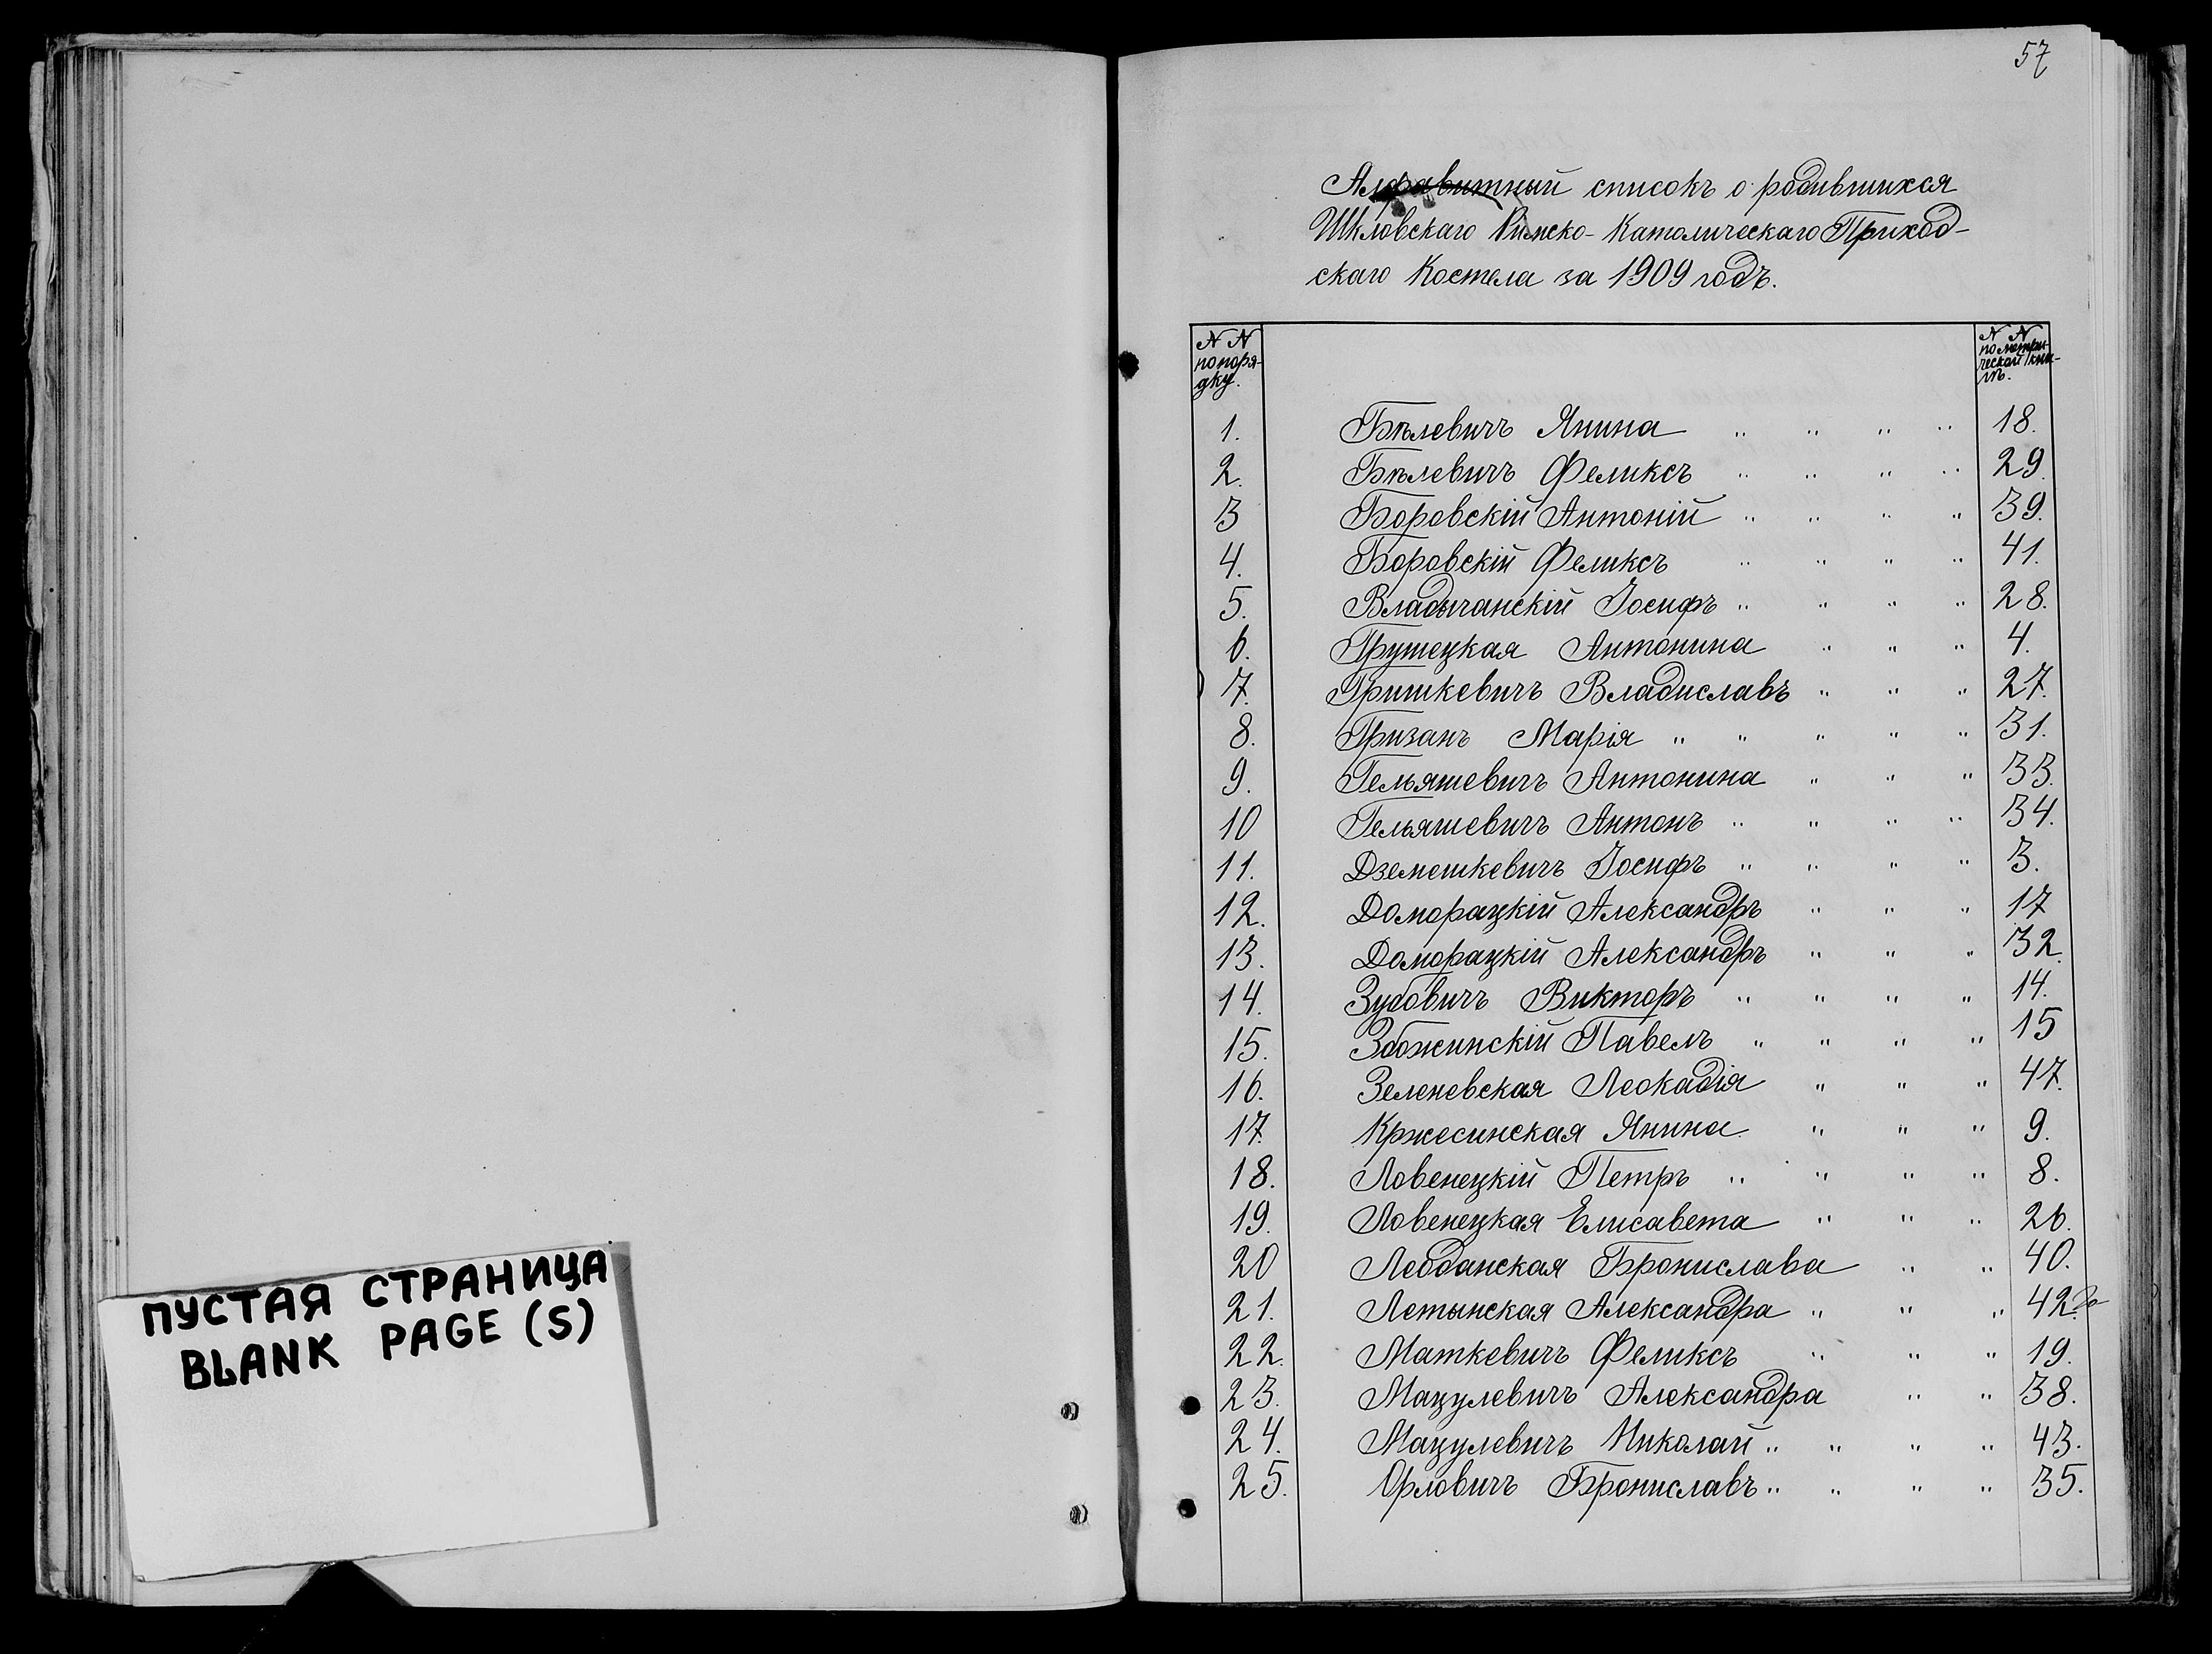 ПУСТАЯ СТРАНИЦА
BLANK PAGE (S)
57
Алфавитный списокъ о родившихся
Шкловскаго Римско-Католическаго Приход-
скаго Костела за 1909 годъ.
N N по поря-дку. N N по метри-ческой кни-гѣ.
1. Бѣлевичъ Янина " " " " 18.
2. Бѣлевичъ Феликсъ " " " " 29.
3 Боровскій Антоній " " " " 39.
4. Боровскій Феликсъ " " " " 41.
5. Владычанскій Іосифъ " " " " 28.
6. Грушецкая Антонина " " " 4.
7. Гришкевичъ Владиславъ " " " 27.
8. Гризанъ Марія " " " " " 31.
9. Гельяшевичъ Антонина " " " 33.
10 Гельяшевичъ Антонъ " " " " 34.
11. Дземешкевичъ Іосифъ " " " " 3.
12. Доморацкій Александръ " " " 17
13. Доморацкій Александръ " " " 32.
14. Зубовичъ Викторъ " " " " 14.
15. Збожинскій Павелъ " " " " 15
16. Зеленевская Леокадія " " " 47.
17. Кржесинская Янина " " " 9.
18. Ловенецкій Петръ " " " " 8.
19. Ловенецкая Елисавета " " " 26.
20 Лебданская Бронислава " " 40.
21. Летынская Александра " " " 42.
22. Маткевичъ Феликсъ " " " 19.
23. Мацулевичъ Александра " " 38.
24. Мацулевичъ Николай " " " " 43.
25. Орловичъ Брониславъ " " " " 35.